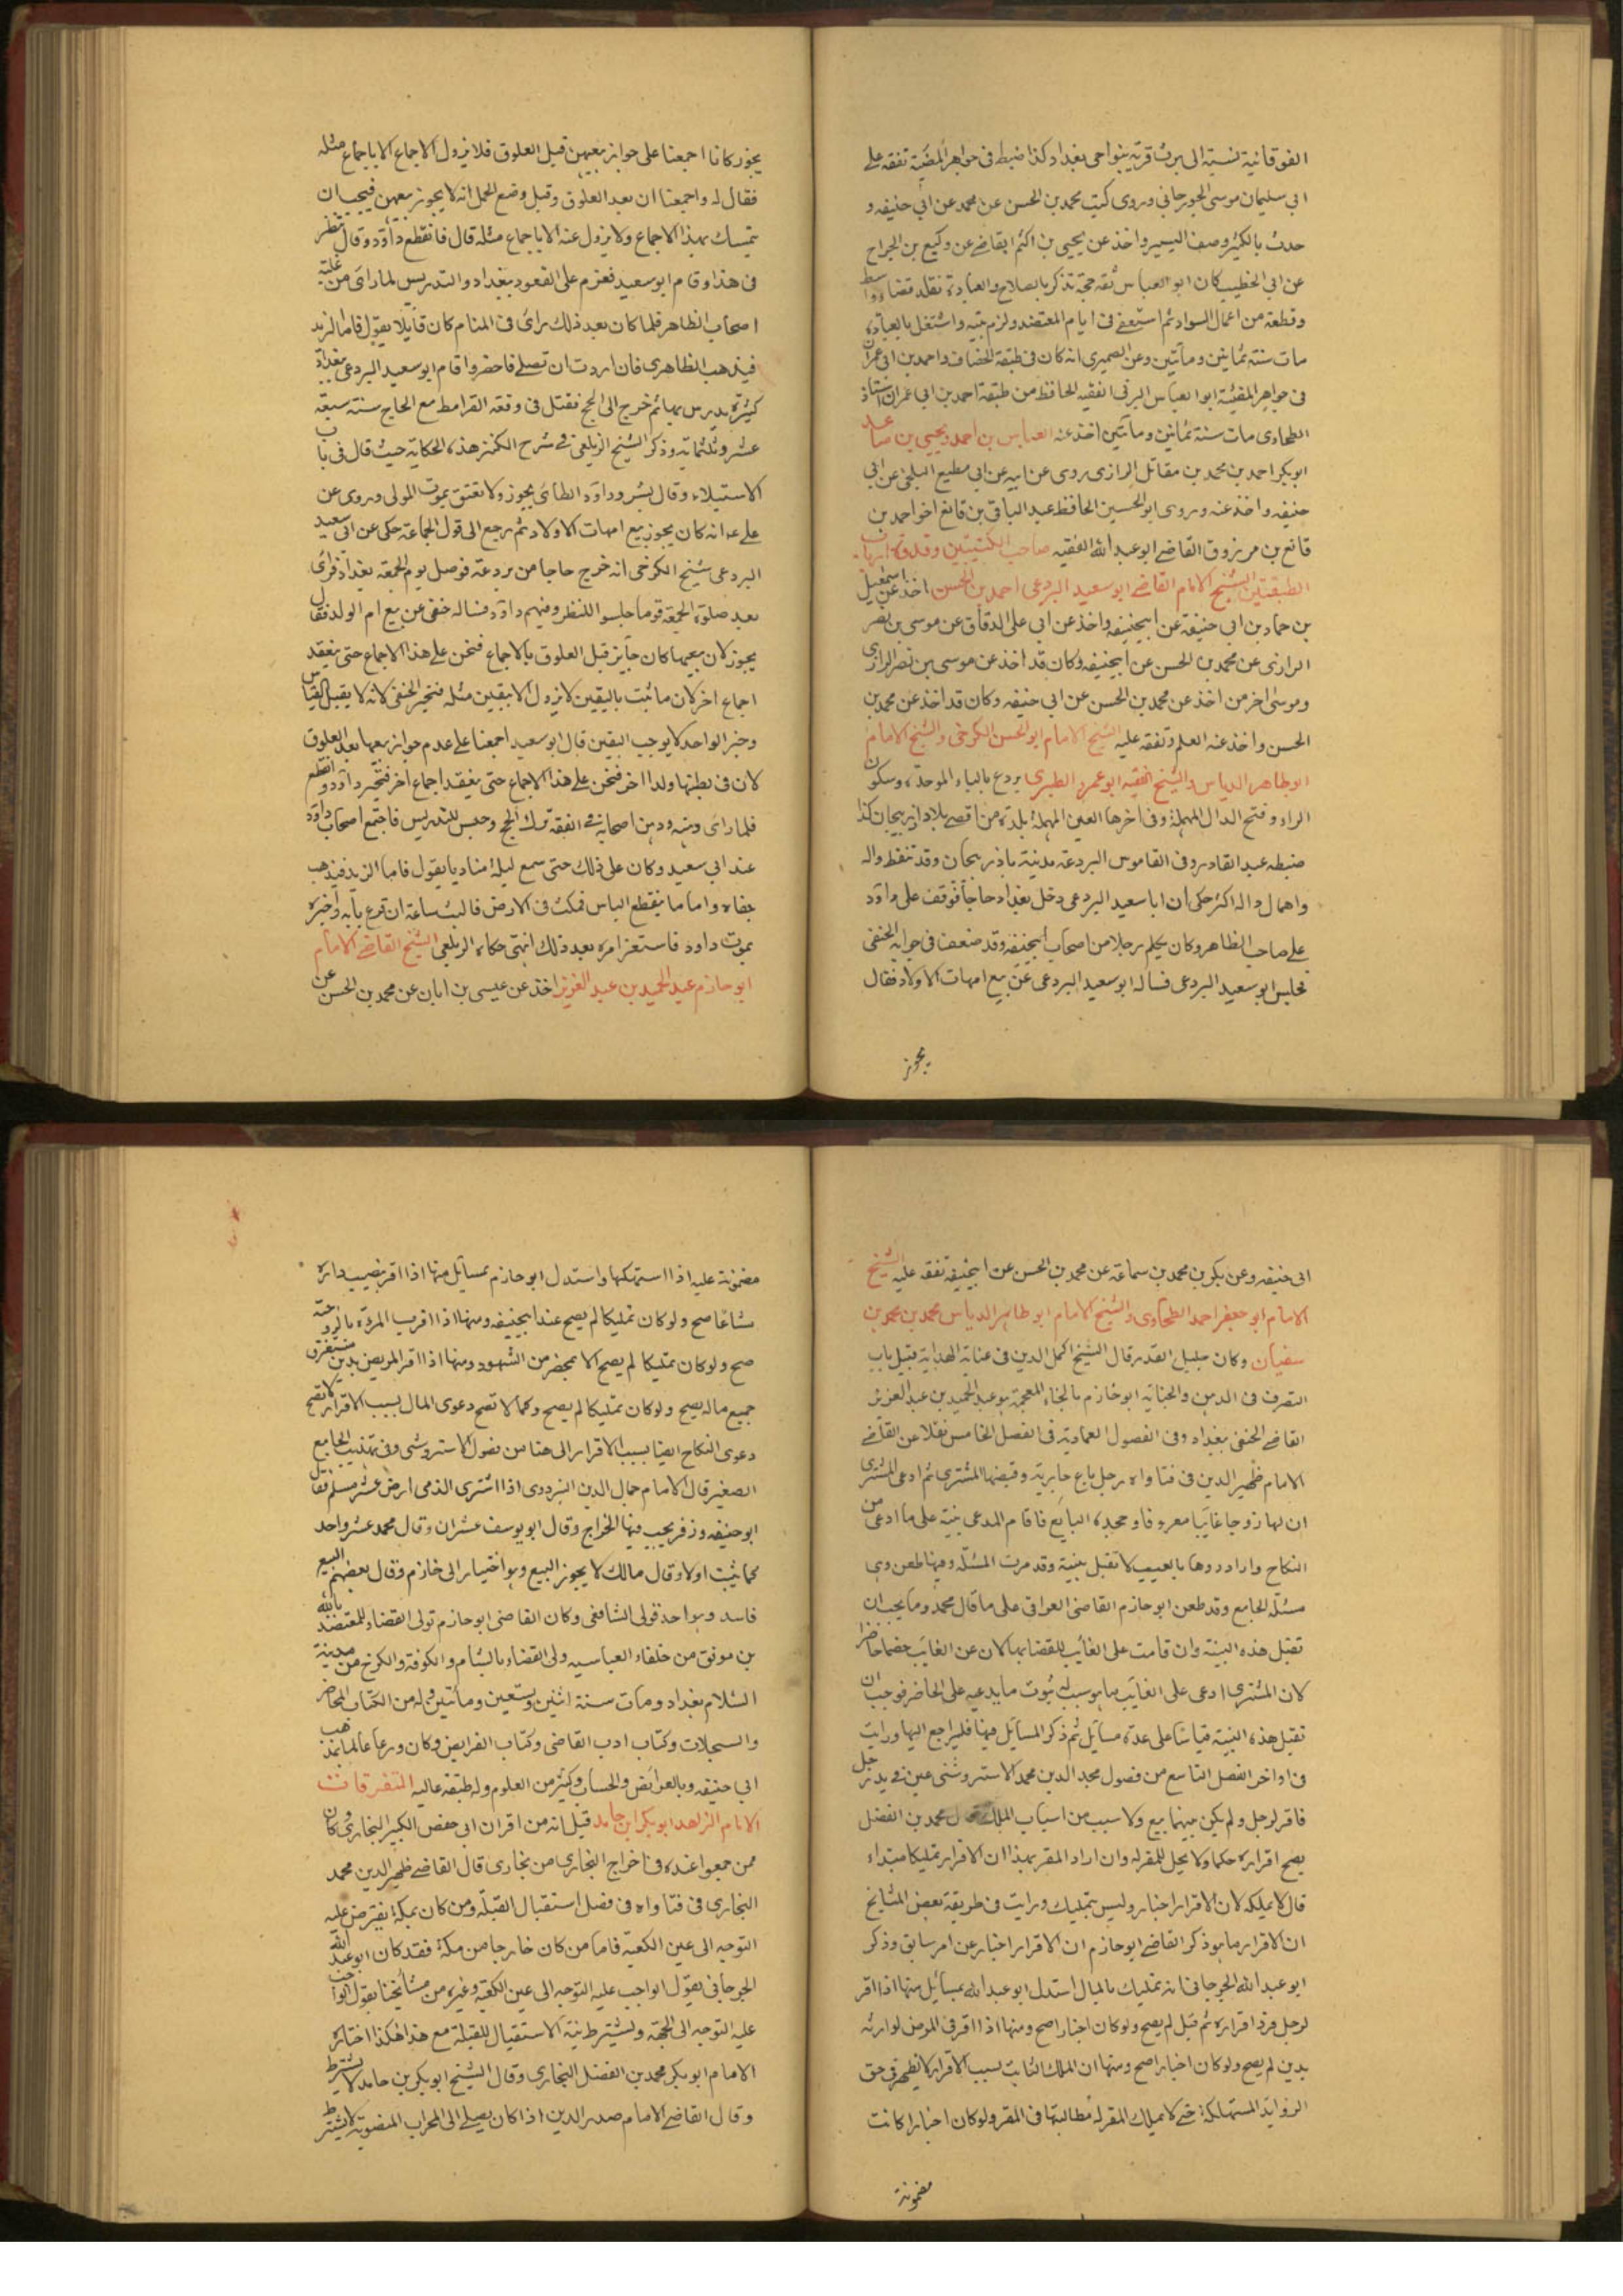 الفوقانية نسبة الى برت قرية بنواحى بغداد كذا ضبط فى جواهر المضيّة تفقه على
ابى سليمان موسى الجورجانى وروى كتب محمد بن الحسن عن محمد عن ابى حنيفه و
حدث بالكثير وصنف اليسير واخذ عن يحيى بن اكثم القاضے عن وكيع بن الجراح
عن ابى الخطيب كان ابو العباس ثقة حجة تذكر بالصلاح والعبادة تقلد قضاء واسط
وقطعة من اعمال السواد ثم استعفے فى ايام المعتضد ولزم بيته واشتغل بالعبادة
مات سنة ثمانين ومأتين وعن الصميرى انه كان فى طبقة الخصاف واحمد بن ابى عمران
فى جواهر المضيّة ابو العباس البرتى الفقيه الحافظ من طبقة احمد بن ابى عمران استاذ
الطحاوى مات سنة ثمانين ومأتين اخذ عنه العباس بن احمد ويحيى بن صاعد
ابو بكر احمد بن محمد بن مقاتل الرازى روى عن ابيه عن ابى مطيع البلخى عن ابى
حنيفه واخذ عنه وروى ابو الحسين الحافظ عبد الباقى بن قانع اخو احمد بن
قانع بن مرزوق القاضے ابو عبد الله الفقيه صاحب
الطبقتين الشيخ الامام القاضے ابو سعيد البردعى احمد بن الحسن اخذ عن اسمعيل
بن حماد بن ابى حنيفة عن ابيحنيفه واخذ عن ابى على الدقاق عن موسى بن نصر
الرازى عن محمد بن الحسن عن ابيحنيفه وكان قد اخذ عن موسى بن نصر الرازى
وموسى اخر من اخذ عن محمد بن الحسن عن ابى حنيفه وكان قد اخذ عن محمد بن
الحسن واخذ عنه العلم وتفقه عليه الشيخ الامام ابو الحسن الكرخى والشيخ الامام
ابو طاهر الدباس والشيخ الفقيه ابو عمرو الطبرى بردع بالباء الموحدة وسكون
الراء وفتح الدال المهملة وفى اخرها العين المهملة بلدة من اقصے بلاد اذربيجان كذا
ضبطه عبد القادر وفى القاموس البردعة مدينة باذربيجان وقد تنقط داله
واهمال داله اكثر حكى ان ابا سعيد البردعى دخل بغداد حاجاً فوقف على داود
على صاحب الظاهر وكان يكلم رجلا من اصحاب ابيحنيفه وقد ضعف فى جوابه الحنفى
فجلس ابو سعيد البردعى فساله ابو سعيد البردعى عن بيع امهات الاولاد فقال
يجوز
يجوز كانا اجمعنا على جواز بيعهن قبل العلوق فلا يزول الاجماع الا باجماع مثله
فقال له واجمعنا ان بعد العلوق وقبل وضع الحمل انه لا يجوز بيعهن فيجب ان
يتمسك بهذا الاجماع ولا يزول عنه الا باجماع مثله قال فانقطع داود وقال ننظر
فى هذا وقام ابو سعيد فعزم على القعود ببغداد والتدريس لما راى من غلبة
اصحاب الظاهر فلما كان بعد ذلك راى فى المنام كان قايلا يقول فاما الزبد
فيذهب الظاهرى فان اردت ان تصلے فاحضر واقام ابو سعيد البردعى ببغداد
كثيرة يدرس بها ثم خرج الى الحج فقتل فى وقعة القرامط مع الحاج سنة سبعة
عشر وثلثمائة وذكر الشيخ الزيلعى فے شرح الكنز هذه الحكاية حيث قال فى باب
الاستيلاء وقال بشر وداود الطائى يجوز ولا تعتق بموت المولى وروى عن
على عه انه كان يجوز بيع امهات الاولاد ثم رجع الى قول الجماعة حكى عن ابى سعيد
البردعى شيخ الكرخى انه خرج حاجا من بردعة فوصل يوم الجمعة بغداد فرأى
بعد صلوة الجمعة قوما جلسوا للنظر وفيهم داود فساله حنفى عن بيع ام الولد فقال
يجوز لان بيعها كان جايز قبل العلوق بالاجماع فنحن على هذا الاجماع حتى ينعقد
اجماع اخر لان ما ثبت باليقين لا يزول الا بيقين مثله فتحير الحنفى لانه لا يقبل القياس
وخبر الواحد لا يوجب اليقين قال ابو سعيد اجمعنا على عدم جواز بيعها بعد العلوق
لان فى بطنها ولدا اخر فنحن على هذا الاجماع حتى ينعقد اجماع اخر فتحير داود وانقطع
فلما راى وهنه ودهن اصحابه فے الفقه ترك الحج وجلس للتدريس فاجتمع اصحاب داود
عند ابى سعيد وكان على ذلك حتى سمع ليلة مناديا يقول فاما الزبد فيذهب
جفاء واما ما ينفع الناس فيمكث فى الارض فما لبث ساعة ان قرع بابه واخبره
بموت داود فاستعز امره بعد ذلك انتهى حكاه الزيلعى الشيخ القاضے الامام
ابو حازم عبد الحميد بن عبد العزيز اخذ عن عيسى بن ابان عن محمد بن الحسن عن
ابى حنيفه وعن بكر بن محمد بن سماعة عن محمد بن الحسن عن ابيحنيفة تفقه عليه الشيخ
الامام ابو جعفر احمد الطحاوى والشيخ الامام ابو طاهر الدباس محمد بن محمد بن
سفيان وكان جليل القدر قال الشيخ اكمل الدين فى عناية الهداية قبيل باب
التصرف فى الرهن والجناية ابو خازم بالخاء المعجمة هو عبد الحميد بن عبد العزيز
القاضے الحنفى ببغداد وفى الفصول العمادية فى الفصل الخامس نقلا عن القاضے
الامام ظهير الدين فى فتاواه رجل باع جارية وقبضها المشترى ثم ادعى المشترى
ان لها زوجا غايبا معروفا وجحده البايع فاقام المدعى بينة على ما ادعى من
النكاح واراد ردها بالعيب لا تقبل بينة وقد مرت المسئلة وفيها طعن وهى
مسئلة الجامع وقد طعن ابو حازم القاضى العراقى على ما قال محمد وما يجب ان
تقبل هذه البينة وان قامت على الغائب للقضا بها لان عن الغايب خصما حاضرا
لان المشترى ادعى على الغائب ما هو سبب لثبوت ما يدعيه على الحاضر فوجب ان
تقبل هذه البينة قياسا على عدة مسايل ثم ذكر المسايل فيها فليراجع اليها ورايت
فى اواخر الفصل التاسع من فصول مجد الدين محمد الاستروشنى عين فى يد رجل
فاقر لرجل ولم يكن بينهما بيع ولا سبب من اسباب الملك قال محمد بن الفضل
يصح اقراره حكما ولا يحل للمقر له وان اراد المقر بهذا ان الاقرار تمليكا مبتداء
قال لا يملكه لان الاقرار اخبار وليس بتمليك ورايت فى طريقة بعض المشايخ
ان الاقرار ما هو ذكر القاضے ابو حازم ان الاقرار اخبار عن امر سابق وذكر
ابو عبد الله الجرجانى انه تمليك بالمال استدل ابو عبد الله بمسائل منها اذا اقر
لرجل فرد اقراره ثم قبل لم يصح ولو كان اخبارا صح ومنها اذا اقر فى المرض لوارثه
بدين لم يصح ولو كان اخبارا صح ومنها ان الملك الثابت بسبب الاقرار لا يظهر فى حق
الزوايد المستهلكة حتے لا يملك المقر له مطالبتها فى المقر ولو كان اخبارا كانت
مضمونة
مضمونة عليه اذا استهلكها واستدل ابو حازم بمسائل منها اذا اقر بنصيب داره
مشاعا صح ولو كان تمليكا لم يصح عند ابيحنيفه ومنها اذا اقرت المرءة بالزوجية
صح ولو كان تمليكا لم يصح الا بمحضر من الشهود ومنها اذا اقر المريض بدين مستغرق
جميع ماله يصح ولو كان تمليكا لم يصح وكما لا تصح دعوى المال بسبب الاقرار لا تصح
دعوى النكاح ايضا بسبب الاقرار الى هنا من فصول الاستروشنى وفى تهذيب الجامع
الصغير قال الامام جمال الدين البزدوى اذا اشترى الذمى ارض عشر مسلم فقال
ابو حنيفه وزفر يجب فيها الخراج وقال ابو يوسف عشران وقال محمد عشر واحد
كما ثبت اولا وقال مالك لا يجوز البيع وهو اختيار ابى خازم وقال بعضهم البيع
فاسد وهو احد قولى الشافعى وكان القاضى ابو حازم تولى القضاء للمعتضد بالله
بن موفق من خلفاء العباسيه ولى القضاء بالشام والكوفة والكرخ من مدينة
السلام بغداد ومات سنة اثنين وتسعين ومأتين وله من الكتاب المحاضر
والسجلات وكتاب ادب القاضى وكتاب الفرايض وكان ورعا عالما بمذهب
ابى حنيفه وبالفرائض والحساب وكثير من العلوم وله طبقة عاليه المتفرقات
الامام الزاهد ابو بكر ابن حامد قيل انه من اقران ابى حفص الكبير البخارى وكان
ممن جمعوا عنده فى اخراج البخارى من بخارى قال القاضے ظهير الدين محمد
البخارى فى فتاواه فى فصل استقبال القبلة ومن كان بمكة يفترض عليه
التوجه الى عين الكعبة فاما من كان خارجا من مكة فقد كان ابو عبد الله
الجرجانى يقول الواجب عليه التوجه الى عين الكعبة وغيره من مشايخنا يقول الواجب
عليه التوجه الى الجهة ولتشترط نية الاستقبال للقبلة مع هذا هكذا اختاره
الامام ابو بكر محمد بن الفضل البخارى وقال الشيخ ابو بكر بن حامد لا يشترط
وقال القاضے الامام صدر الدين اذا كان يصلے الى المحراب المنصوبة لا يشترط